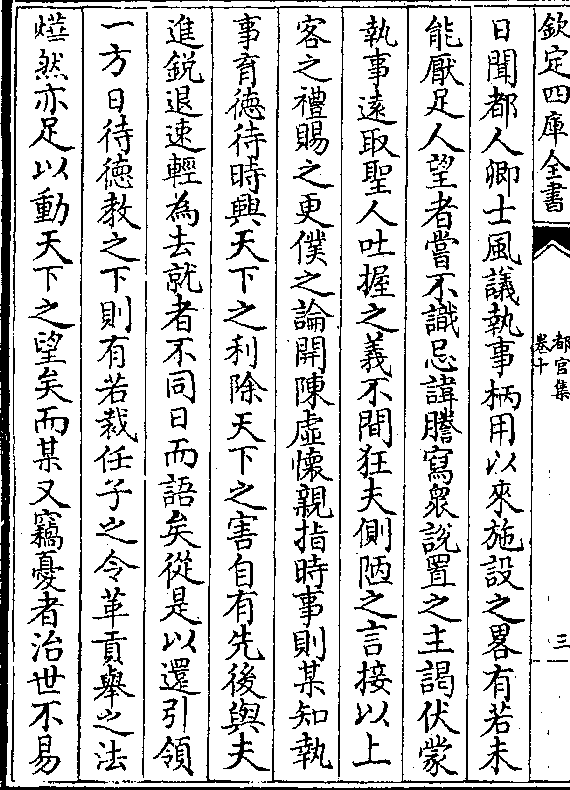 欽定四庫全書
都官集
卷十
三
日聞都人卿士風議執事柄用以來施設之畧有若未
能厭足人望者嘗不識忌諱謄寫衆說置之主謁伏蒙
執事遠取聖人吐握之義不間狂夫側陋之言接以上
客之禮賜之更僕之論開陳虛懷親指時事則某知執
事育德待時興天下之利除天下之害自有先後與夫
進銳退速輕為去就者不同日而語矣從是以還引領
一方日待德教之下則有若裁任子之令革貢舉之法
燁然亦足以動天下之望矣而某又竊憂者治世不易